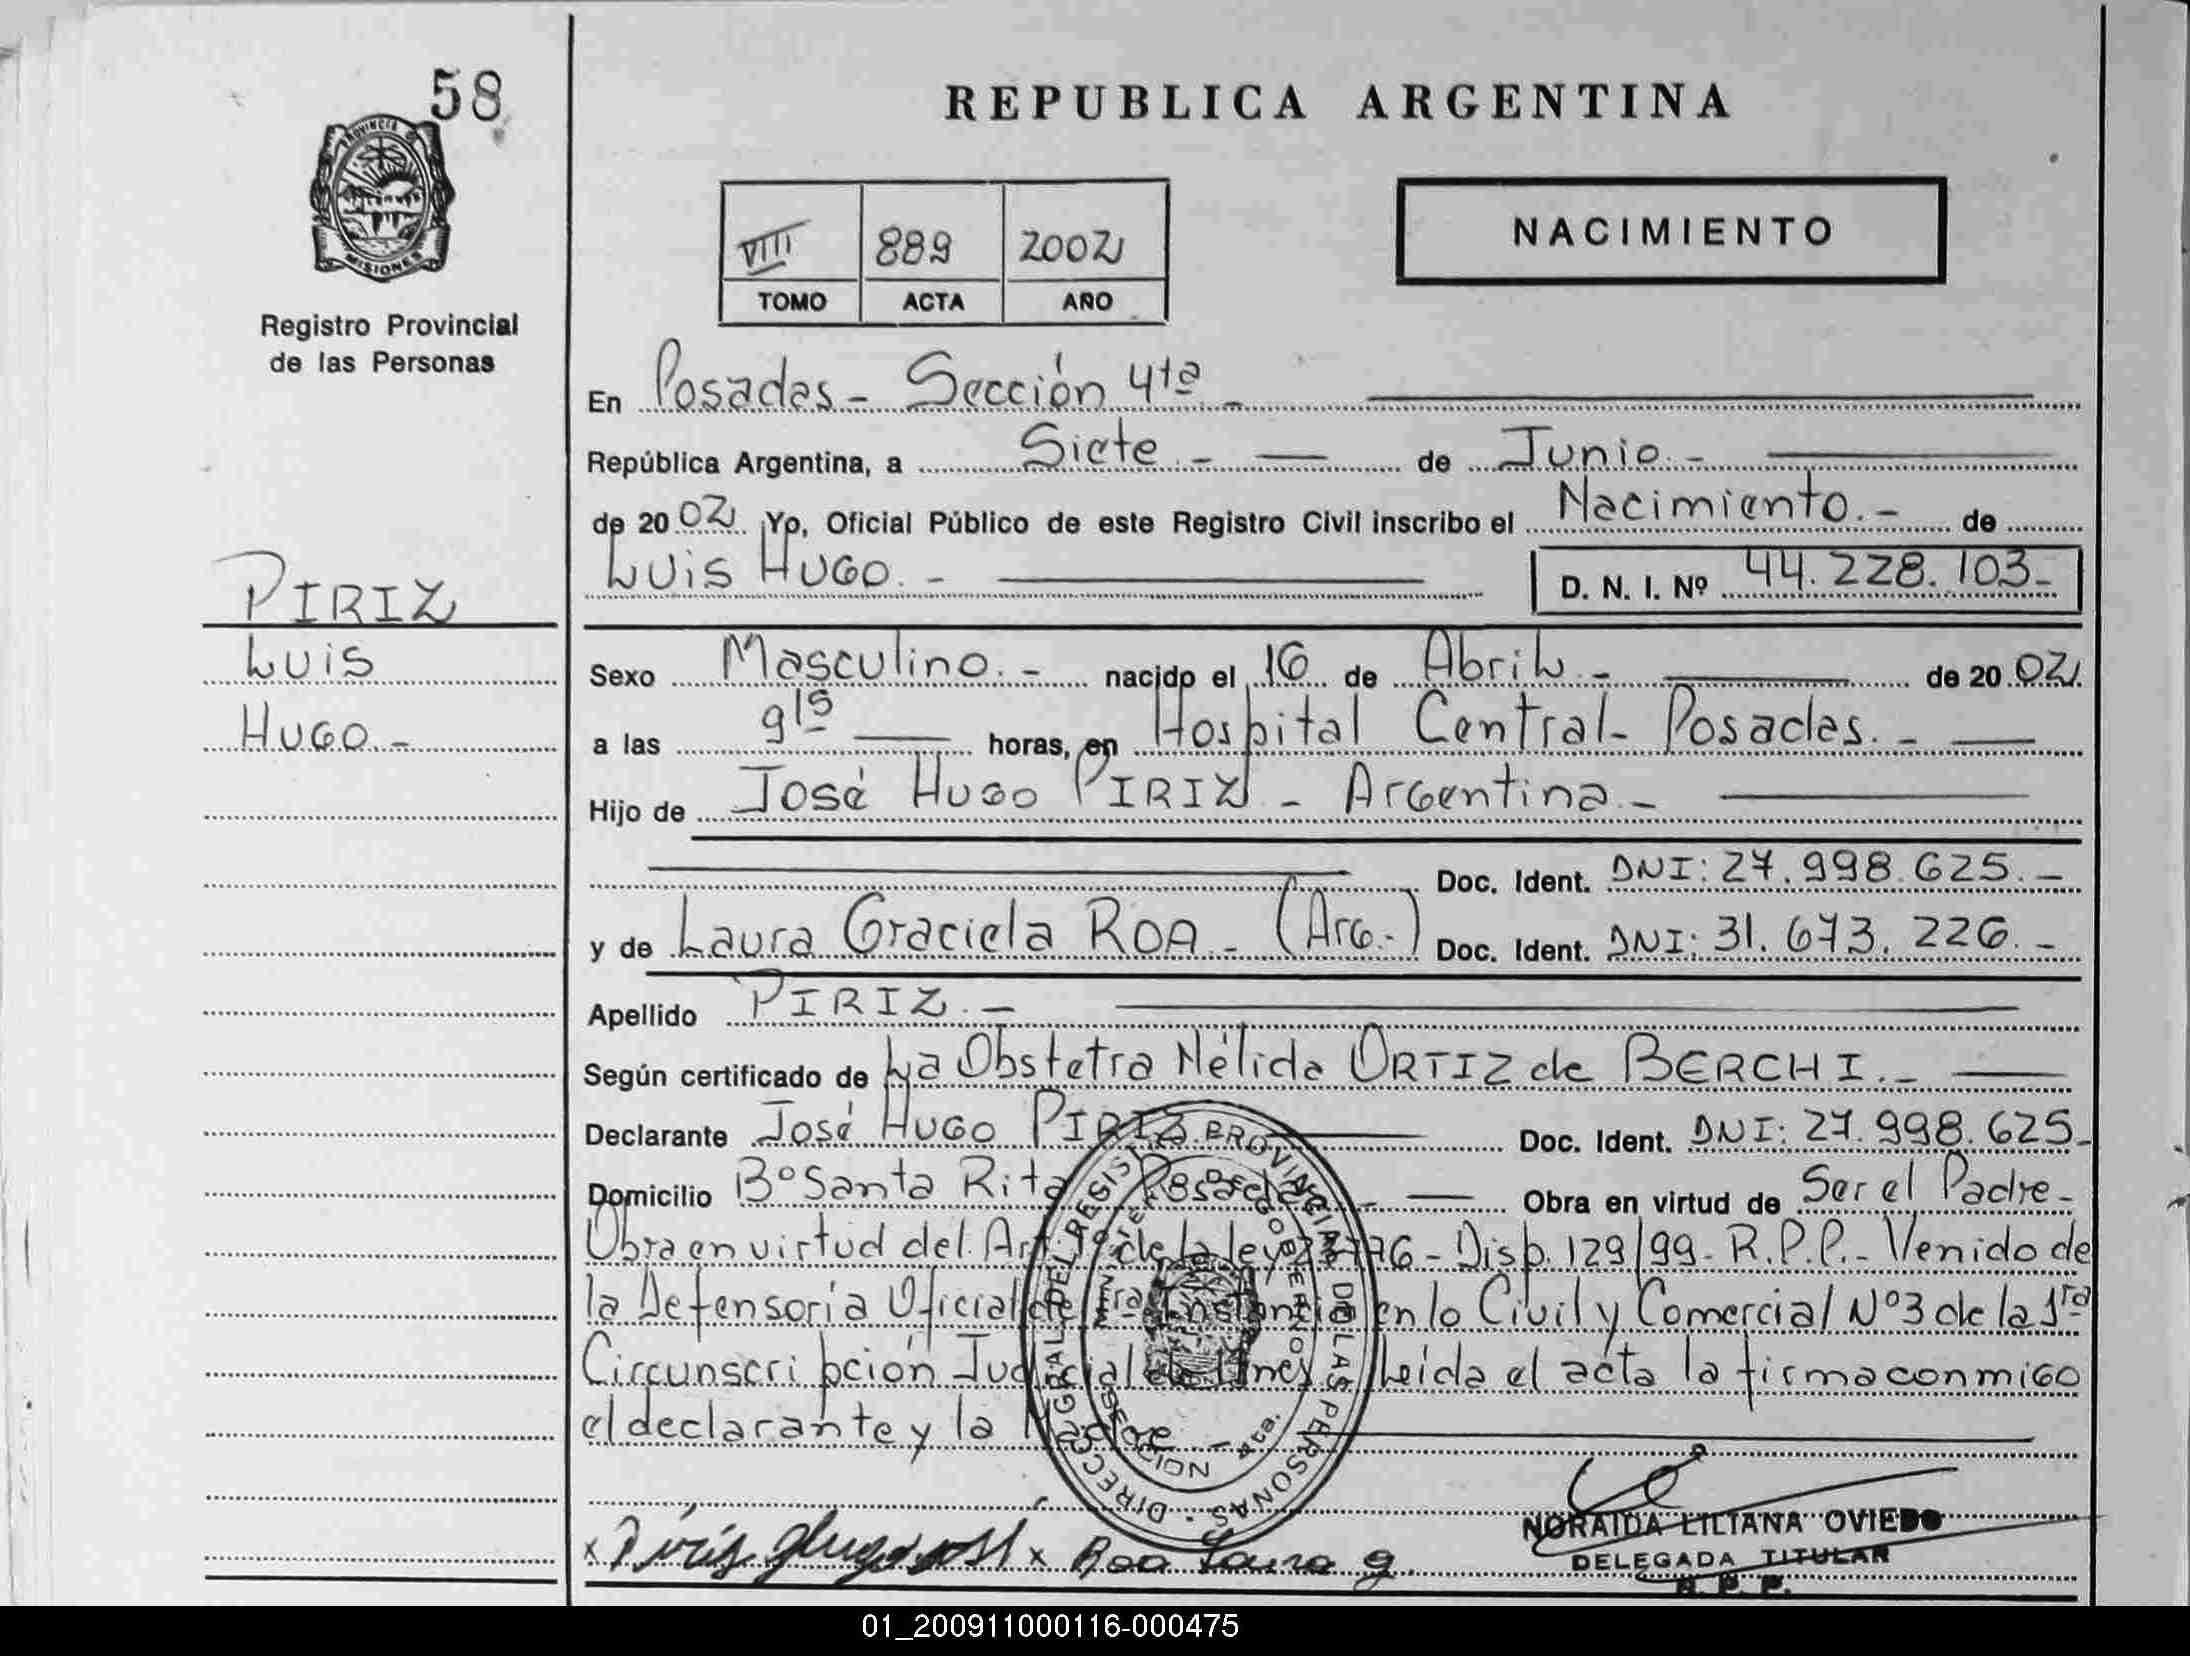 58
PROVINCIA DE
MISIONES
Registro Provincial
de las Personas
PIRIZ
Luis
Hugo.-
REPUBLICA ARGENTINA
VIII 889 2002
TOMO ACTA AÑO
NACIMIENTO
En Posadas - Sección 4ta -
República Argentina, a Siete.- de Junio.-
de 2002 Yo, Oficial Público de este Registro Civil inscribo el Nacimiento.- de
Luis Hugo.- D. N. I. Nº 44.228.103-
Sexo Masculino.- nacido el 16 de Abril - de 2002
a las 9 15 horas, en Hospital Central - Posadas.-
Hijo de José Hugo PIRIZ - Argentina -
Doc. Ident. DNI: 27.998.625.-
y de Laura Graciela ROA - (Arg.-) Doc. Ident. DNI: 31.673.226.-
Apellido PIRIZ.-
Según certificado de La Obstetra Nélida ORTIZ de BERCHI.-
Declarante José Hugo PIRIZ Doc. Ident. DNI: 27.998.625-
Domicilio Bº Santa Rita Posadas - Obra en virtud de Ser el Padre-
Obra en virtud del Art. de la ley - Disp. 129/99 - R.P.P. - Venido de
la Defensoria Oficial de 1ra Instancia en lo Civil y Comercial Nº3 de la 1ra
Circunscripción Judicial Leída el acta la firma conmigo
el declarante y la Madre -
DIRECC. GRAL. DEL REGISTRO PROVINCIAL DE LAS PERSONAS
MIN. DE GOBIERNO
SECCION 4ta.
x Piris Hugo José x Roa Laura g.
NORAIDA LILIANA OVIEDO
DELEGADA TITULAR
R. P. P.
01_200911000116-000475